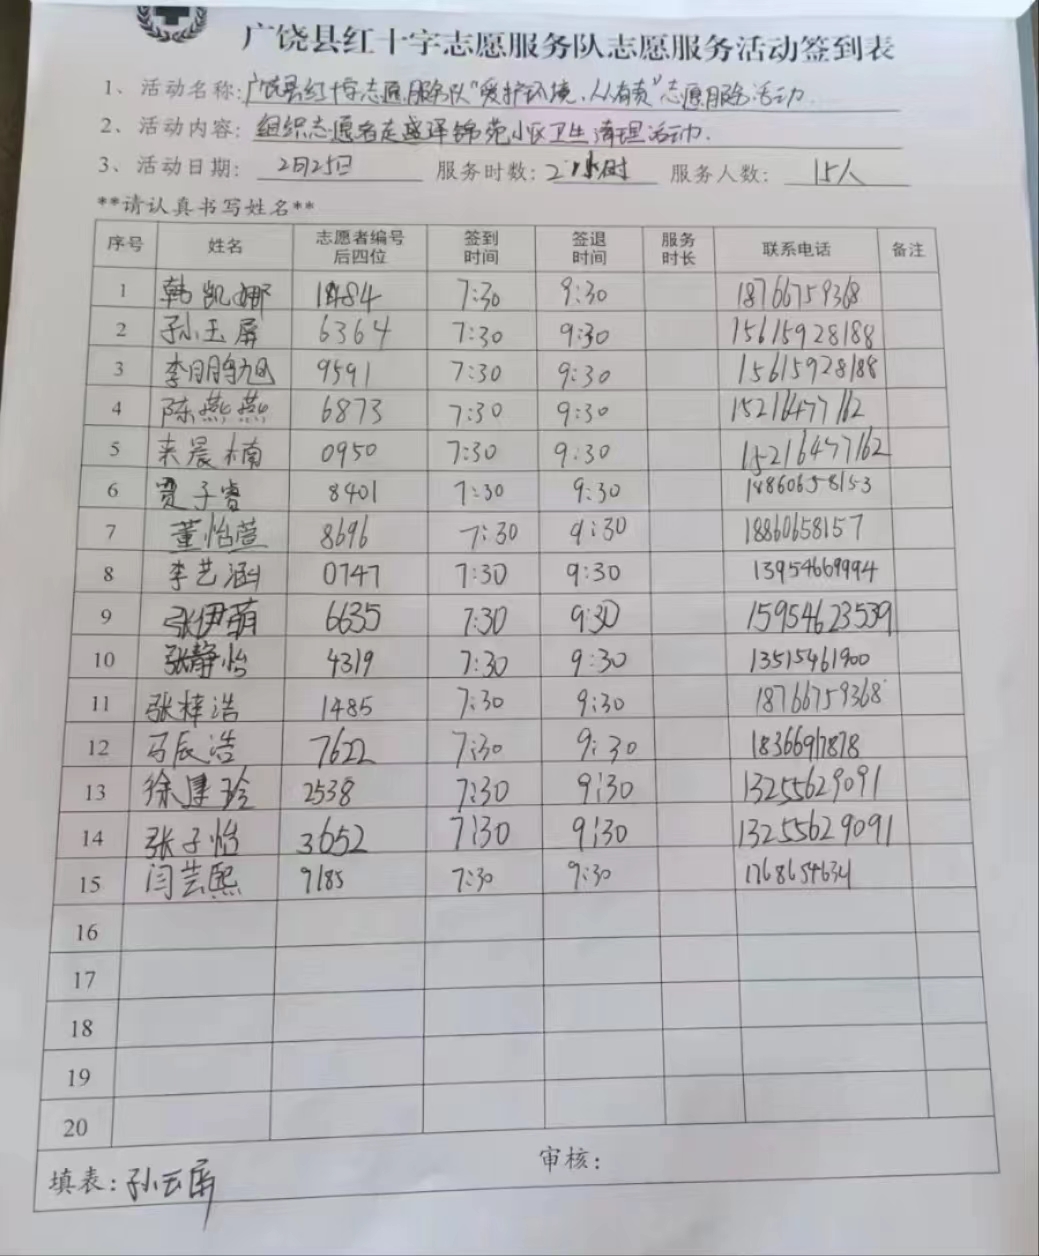 广饶县红十字志愿服务队志愿服务活动签到表
1、活动名称:广饶县红十字志愿服务队"爱护环境、人人有责"志愿服务活动.
2、活动内容:组织志愿者走盛泽锦苑小区卫生清理活动.
3、活动日期: 2月25日 服务时数: 2小时 服务人数: 15人
**请认真书写姓名**
序号 姓名 志愿者编号后四位 签到时间 签退时间 服务时长 联系电话 备注
1 韩凯娜 1484 7:30 9:30 18766759368
2 孙玉屏 6364 7:30 9:30 15615928188
3 李鹏旭 9591 7:30 9:30 15615928188
4 陈燕燕 6873 7:30 9:30 15216477162
5 来晨楠 0950 7:30 9:30 15216477162
6 贾子睿 8401 7:30 9:30
7 董怡萱 8696 7:30 9:30 18860658157
8 李艺涵 0747 7:30 9:30 13954669994
9 张伊萌 6635 7:30 9:30 15954623539
10 张静怡 4319 7:30 9:30 13515461900
11 张梓浩 1485 7:30 9:30 18766759368
12 马辰浩 7622 7:30 9:30
13 徐建玲 2538 7:30 9:30 13255629091
14 张子怡 3652 7:30 9:30 13255629091
15 闫芸熙 9185 7:30 9:30
16
17
18
19
20
填表: 孙玉屏 审核: